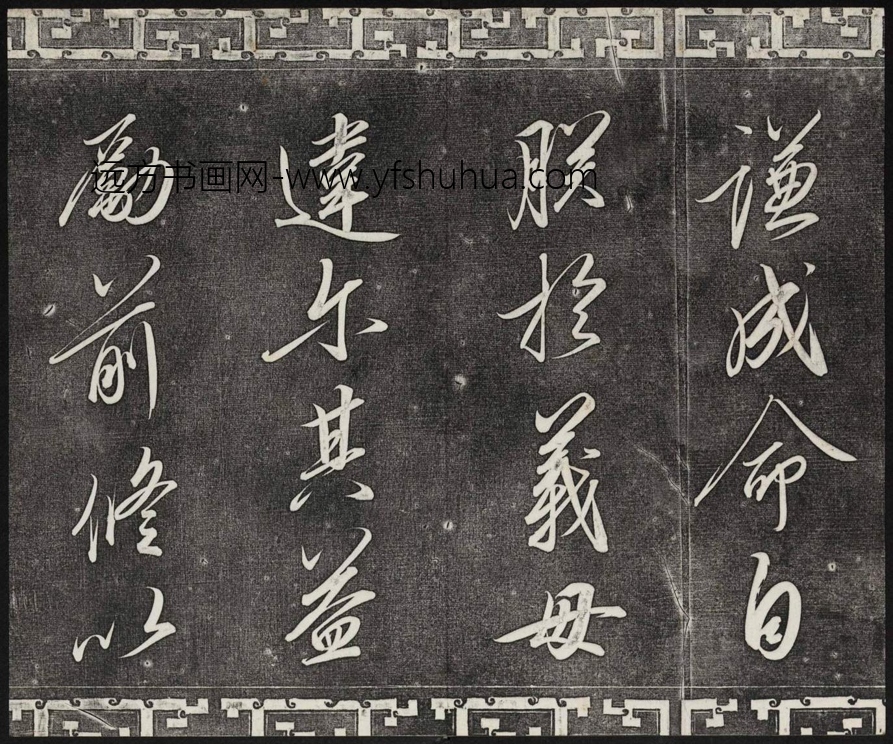 谦成命自
朕於義毋
違尔其益
勵前脩以
远方书画网-www.yfshuhua.com